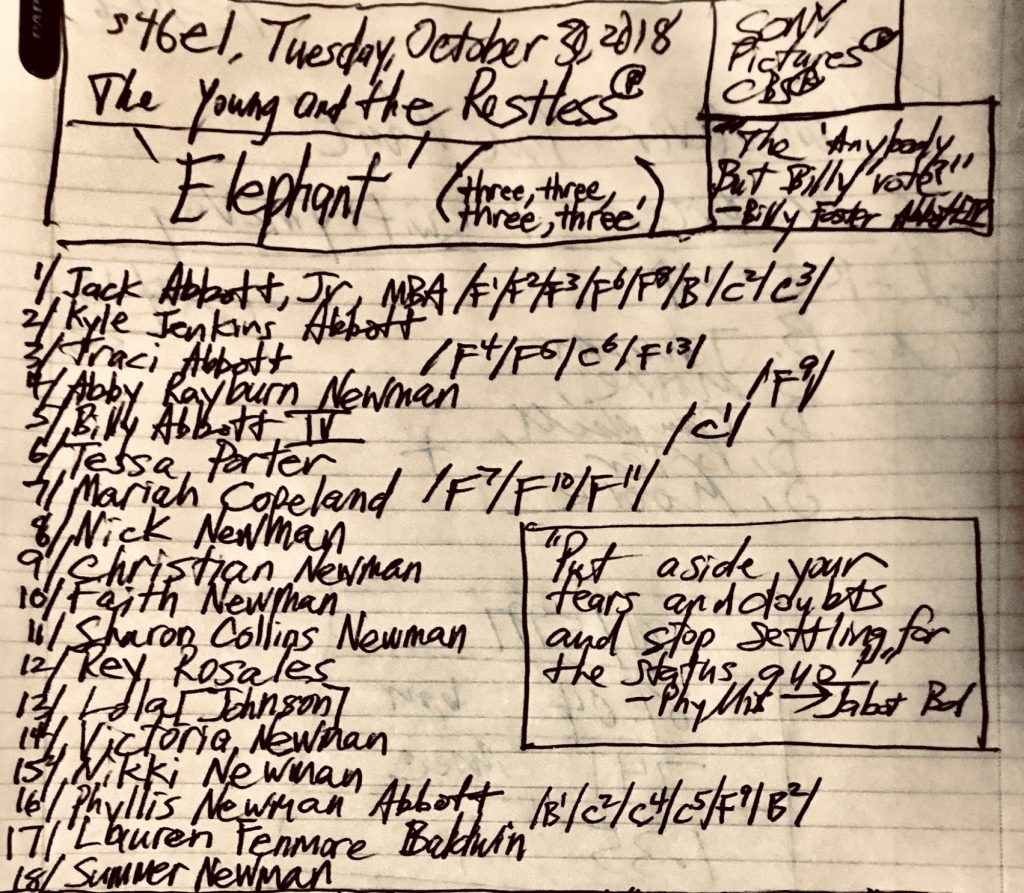 s46e1, Tuesday, October 30, 2018
The Young and the Restless®
Sony
Pictures®
CBS®
'Elephant' (three, three,
three, three')
"The 'Anybody
But Billy' vote?"
—Billy Foster Abbott III
1/ Jack Abbott, Jr, MBA /F¹/F²/F³/F⁶/F⁸/B¹/C²/C³/
2/ Kyle Jenkins Abbott
3/ Traci Abbott /F⁴/F⁵/C⁶/F¹³/
4/ Abby Rayburn Newman /F⁹/
5/ Billy Abbott IV /C¹/
6/ Tessa Porter
7/ Mariah Copeland /F⁷/F¹⁰/F¹¹/
8/ Nick Newman
9/ Christian Newman
10/ Faith Newman
11/ Sharon Collins Newman
12/ Rey Rosales
13/ Lola [Johnson]
14/ Victoria Newman
15/ Nikki Newman
16/ Phyllis Newman Abbott /B¹/C²/C⁴/C⁵/F⁹/B²/
17/ Lauren Fenmore Baldwin
18/ Summer Newman
"Put aside your
fears and doubts
and stop settling for
the status quo!"
—Phyllis → Jabot Bd